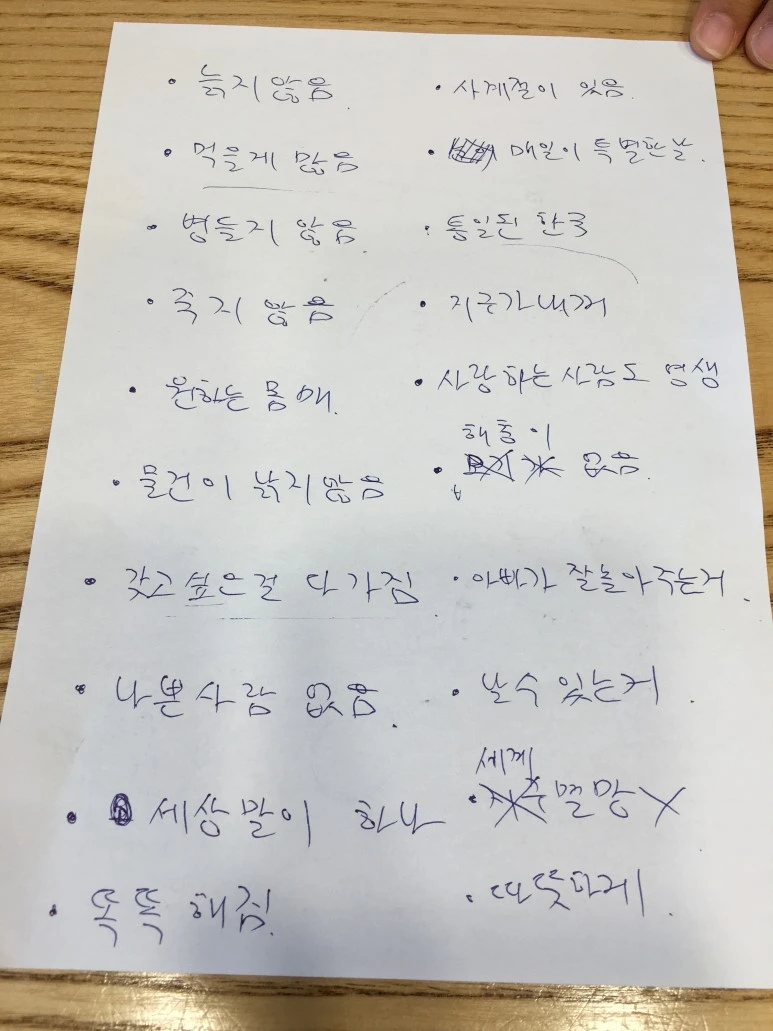 • 늙지 않음.
• 먹을게 많음
• 병들지 않음
• 죽지 않음
• 원하는 몸매.
• 물건이 낡지않음
• 갖고 싶은걸 다 가짐
• 나쁜사람 없음.
• 세상말이 하나
• 똑똑해짐.
• 사계절이 있음.
• 매일이 특별한날.
• 통일된 한국
• 지구가내꺼
• 사랑하는사람도 영생
해충이
• 없음.
• 아빠가 잘놀아주는거.
• 날수 있는거.
세계
• 멸망X
• 따뜻하게.